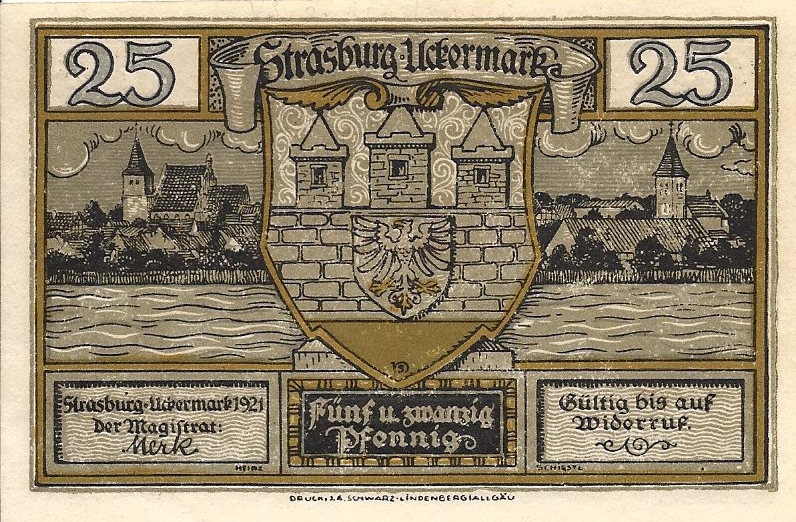 25
Strasburg-Uckermark
25
Strasburg-Uckermark 1921
Der Magistrat:
Merk
Fünf u. zwanzig
Pfennig
Gültig bis auf
Widerruf.
HEINZ
SCHIESTL
DRUCK: J.A. SCHWARZ-LINDENBERG I ALLGÄU